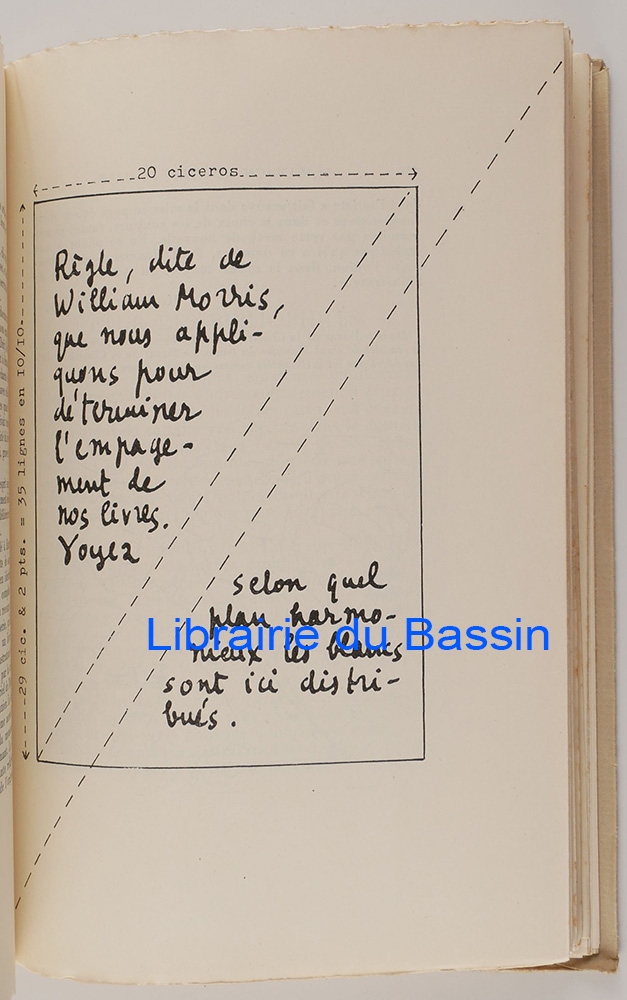 20 ciceros
29 cic. & 2 pts. = 35 lignes en 10/10
Règle, dite de
William Morris,
que nous appli-
quons pour
déterminer
l'empage-
ment de
nos livres.
Voyez
selon quel
plan harmo-
nieux les blancs
sont ici distri-
bués.
Librairie du Bassin